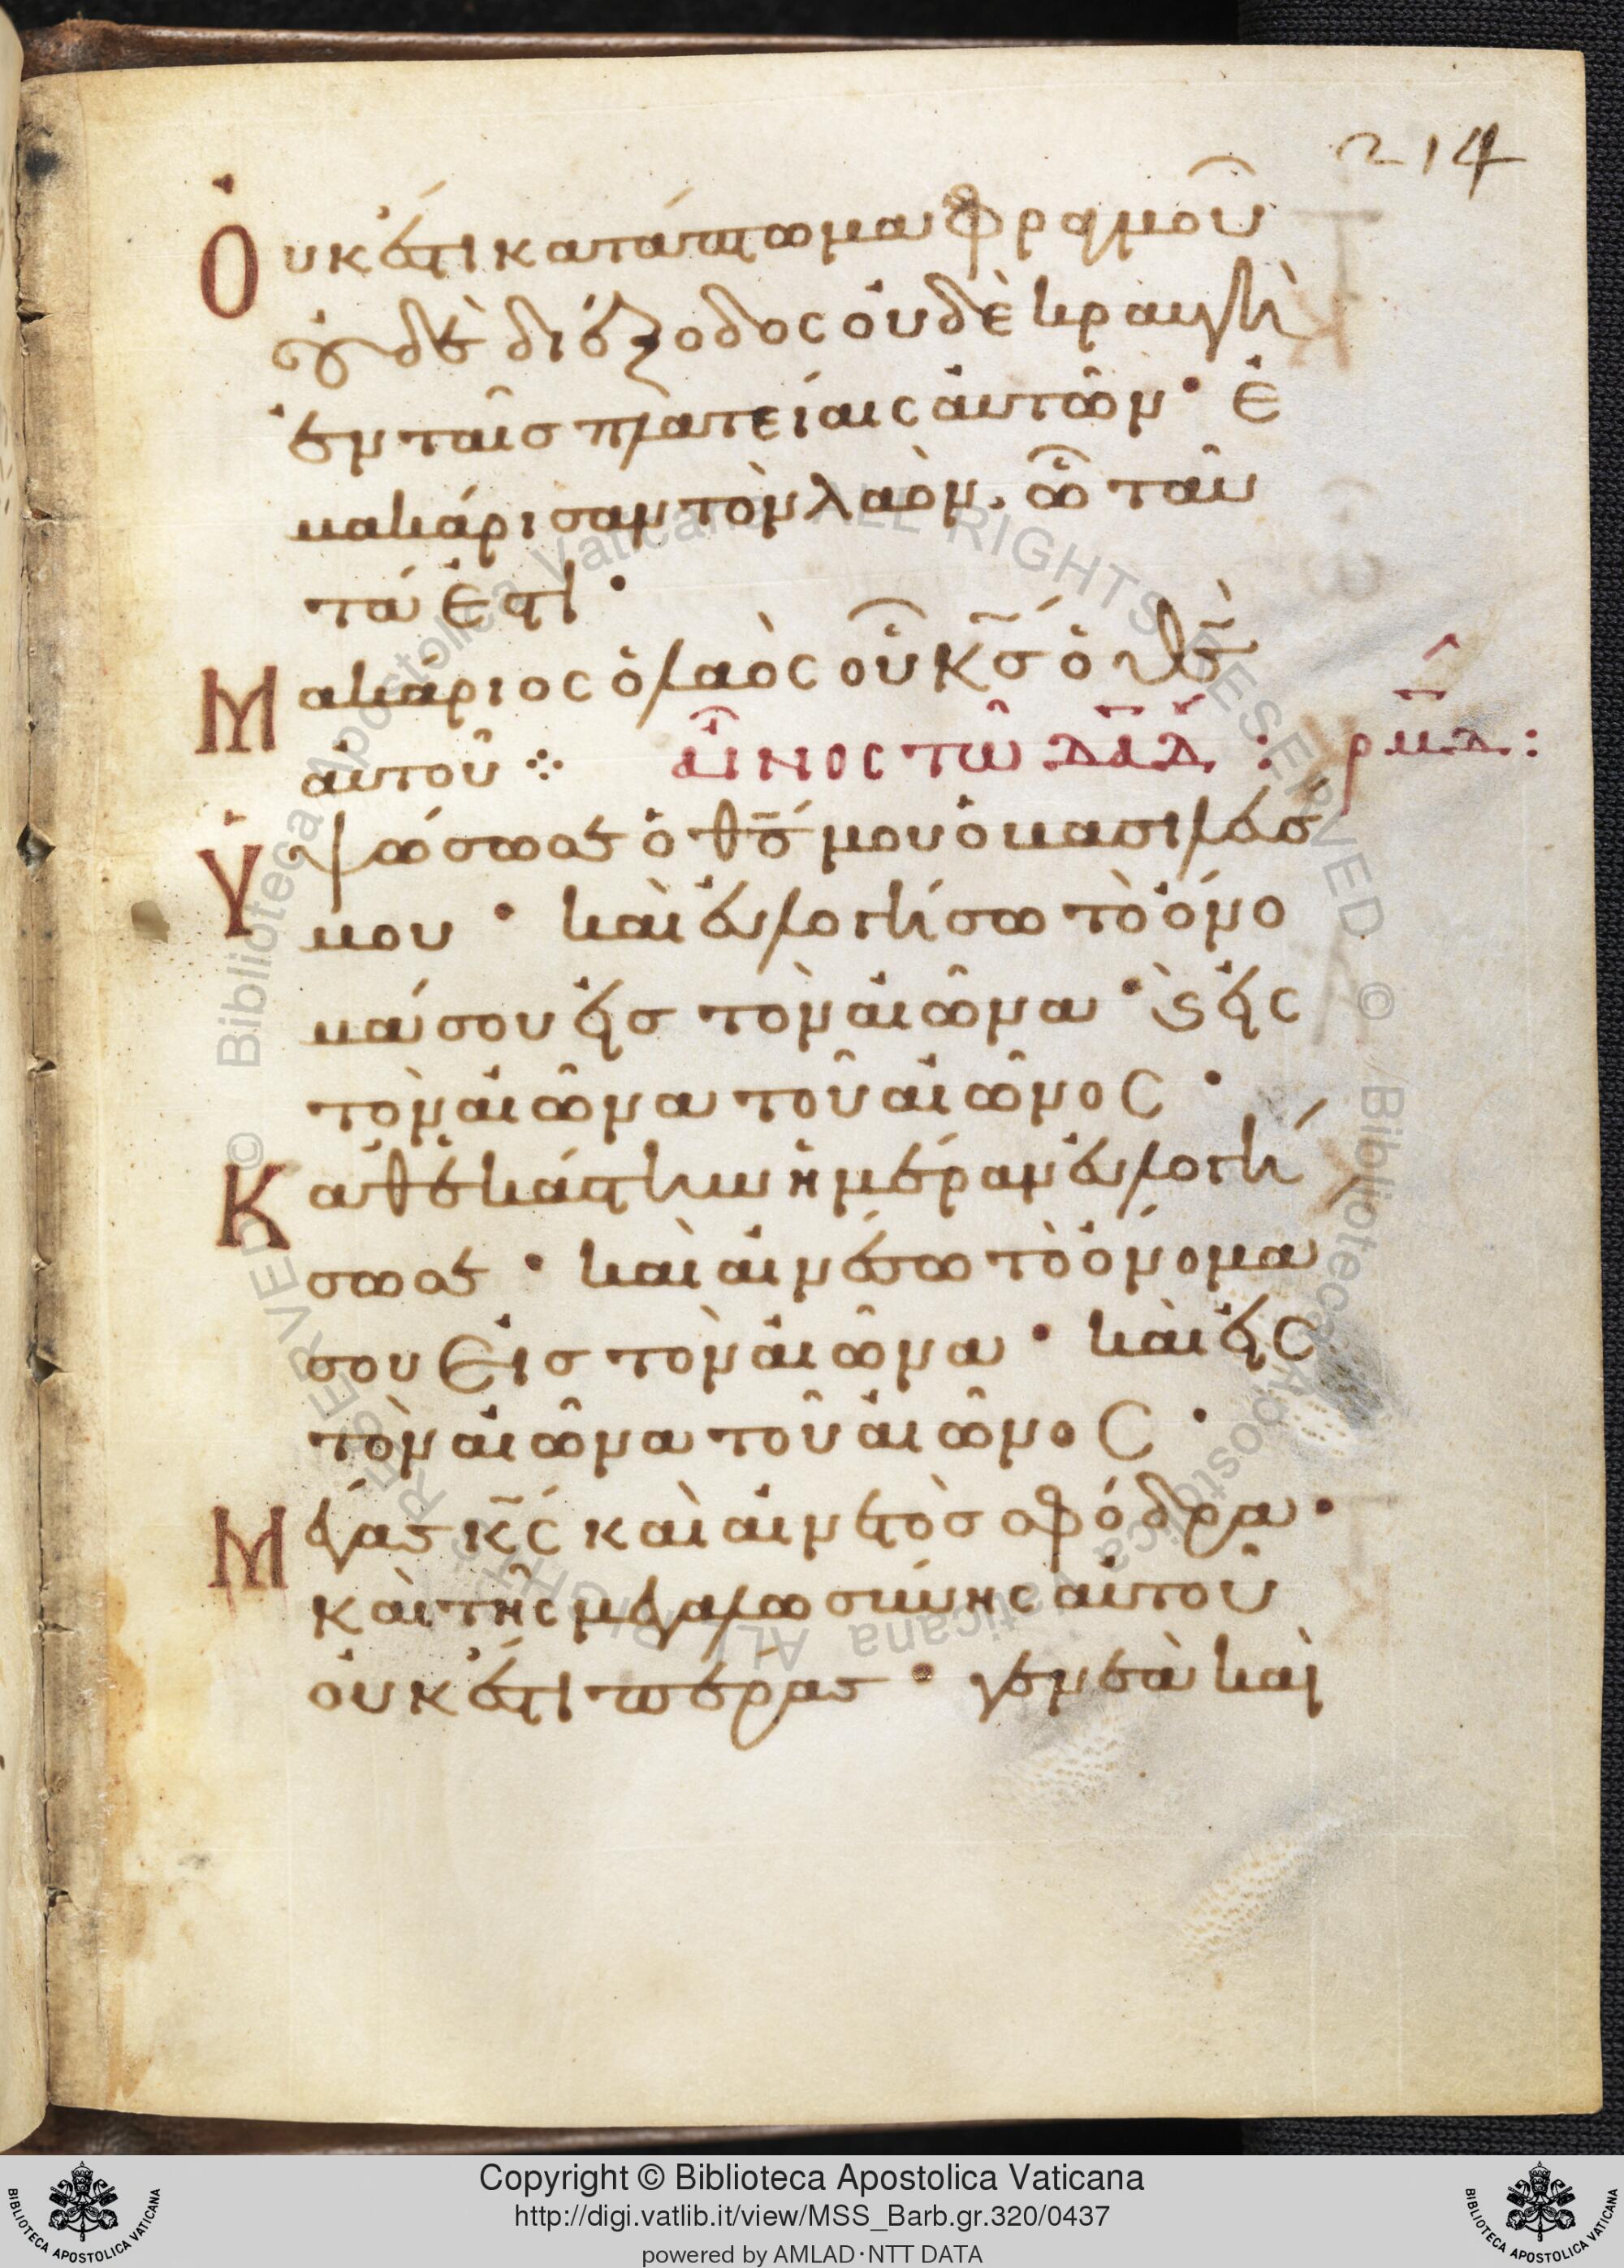 214
Οὐκ ἔστι κατάπτωμα φραγμοῦ
οὐδὲ διέξοδος οὐδὲ κραυγὴ
ἐν ταῖς πλατείαις αὐτῶν· ἐ
μακάρισαν τὸν λαὸν, ᾧ ταῦ
τά ἐστι·
Μακάριος ὁ λαὸς οὗ κ̅ς̅ ὁ θ̅ς̅
αὐτοῦ ⁘ αἶνος τῶ δ̅α̅δ̅ : ρ̅μ̅δ̅ :
Ὑψώσω σε ὁ θ̅ς̅ μου ὁ βασιλεύς
μου · καὶ εὐλογήσω τὸ ὄνο
μά σου εἰς τὸν αἰῶνα · ϗ εἰς
τὸν αἰῶνα τοῦ αἰῶνος ·
Καθ' ἑκάστην ἡμέραν εὐλογή
σω σε · καὶ αἰνέσω τὸ ὄνομα
σου εἰς τὸν αἰῶνα · καὶ εἰς
τὸν αἰῶνα τοῦ αἰῶνος ·
Μέγας κ̅ς̅ καὶ αἰνετὸς σφόδρα ·
καὶ τῆς μεγαλωσύνης αὐτοῦ
οὐκ ἔστι πέρας · γενεὰ καὶ
Copyright © Biblioteca Apostolica Vaticana
http://digi.vatlib.it/view/MSS_Barb.gr.320/0437
powered by AMLAD·NTT DATA